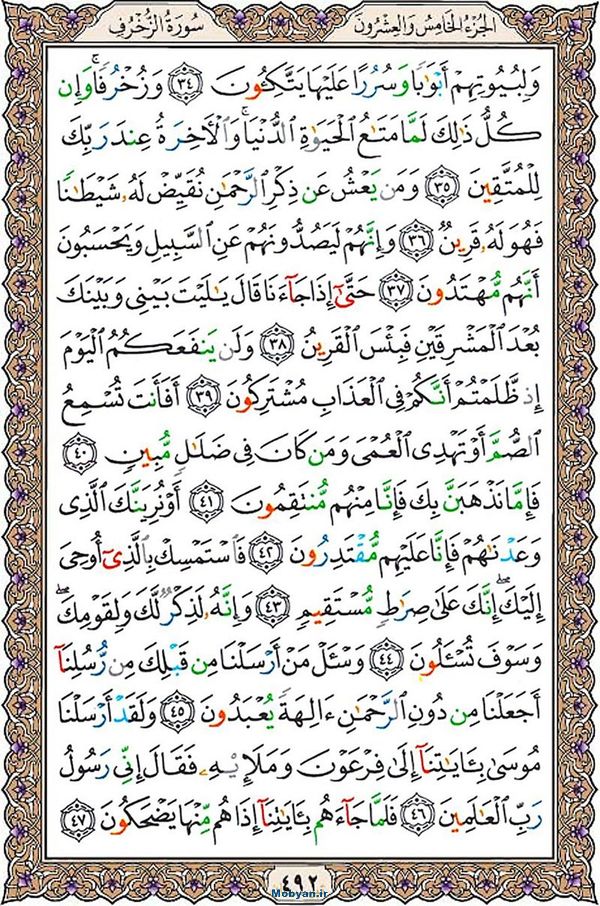 الجزء الخامس والعشرون
سورة الزخرف
وَلِبُيُوتِهِمْ أَبْوَٰبًا وَسُرُرًا عَلَيْهَا يَتَّكِـُٔونَ ٣٤ وَزُخْرُفًا ۚ وَإِن
كُلُّ ذَٰلِكَ لَمَّا مَتَـٰعُ الْحَيَوٰةِ الدُّنْيَا ۚ وَالْـَٔاخِرَةُ عِندَ رَبِّكَ
لِلْمُتَّقِينَ ٣٥ وَمَن يَعْشُ عَن ذِكْرِ الرَّحْمَـٰنِ نُقَيِّضْ لَهُۥ شَيْطَـٰنًا
فَهُوَ لَهُۥ قَرِينٌ ٣٦ وَإِنَّهُمْ لَيَصُدُّونَهُمْ عَنِ السَّبِيلِ وَيَحْسَبُونَ
أَنَّهُم مُّهْتَدُونَ ٣٧ حَتَّىٰٓ إِذَا جَآءَنَا قَالَ يَـٰلَيْتَ بَيْنِى وَبَيْنَكَ
بُعْدَ الْمَشْرِقَيْنِ فَبِئْسَ الْقَرِينُ ٣٨ وَلَن يَنفَعَكُمُ الْيَوْمَ
إِذ ظَّلَمْتُمْ أَنَّكُمْ فِى الْعَذَابِ مُشْتَرِكُونَ ٣٩ أَفَأَنتَ تُسْمِعُ
الصُّمَّ أَوْ تَهْدِى الْعُمْىَ وَمَن كَانَ فِى ضَلَـٰلٍ مُّبِينٍ ٤٠
فَإِمَّا نَذْهَبَنَّ بِكَ فَإِنَّا مِنْهُم مُّنتَقِمُونَ ٤١ أَوْ نُرِيَنَّكَ الَّذِى
وَعَدْنَـٰهُمْ فَإِنَّا عَلَيْهِم مُّقْتَدِرُونَ ٤٢ فَاسْتَمْسِكْ بِالَّذِىٓ أُوحِىَ
إِلَيْكَ ۖ إِنَّكَ عَلَىٰ صِرَٰطٍ مُّسْتَقِيمٍ ٤٣ وَإِنَّهُۥ لَذِكْرٌ لَّكَ وَلِقَوْمِكَ ۖ
وَسَوْفَ تُسْـَٔلُونَ ٤٤ وَسْـَٔلْ مَنْ أَرْسَلْنَا مِن قَبْلِكَ مِن رُّسُلِنَآ
أَجَعَلْنَا مِن دُونِ الرَّحْمَـٰنِ ءَالِهَةً يُعْبَدُونَ ٤٥ وَلَقَدْ أَرْسَلْنَا
مُوسَىٰ بِـَٔايَـٰتِنَآ إِلَىٰ فِرْعَوْنَ وَمَلَإِي۟هِۦ فَقَالَ إِنِّى رَسُولُ
رَبِّ الْعَـٰلَمِينَ ٤٦ فَلَمَّا جَآءَهُم بِـَٔايَـٰتِنَآ إِذَا هُم مِّنْهَا يَضْحَكُونَ ٤٧
٤٩٢
Mobyan.ir